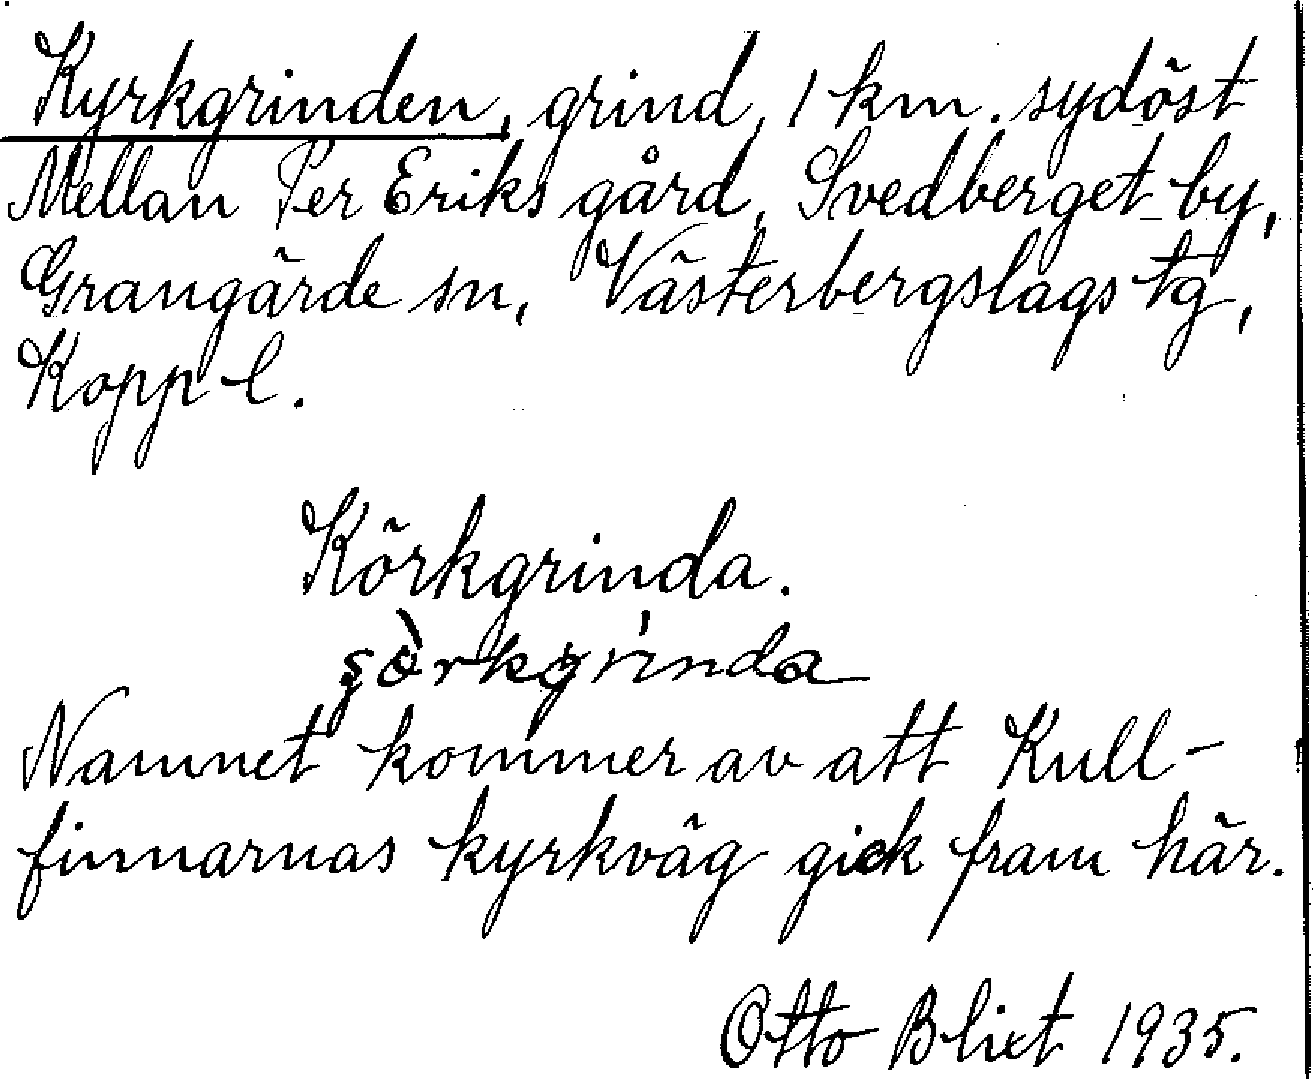 Kyrkgrinden, grind, 1 km. sydöst
Mellan Per Eriks gård, Svedberget by,
Grangärde sn, Västerbergslags tg,
Kopp l.
Körkgrinda.
şòrkgrìnda
Namnet kommer av att Kull-
finnarnas kyrkväg gick fram här.
Otto Blixt 1935.